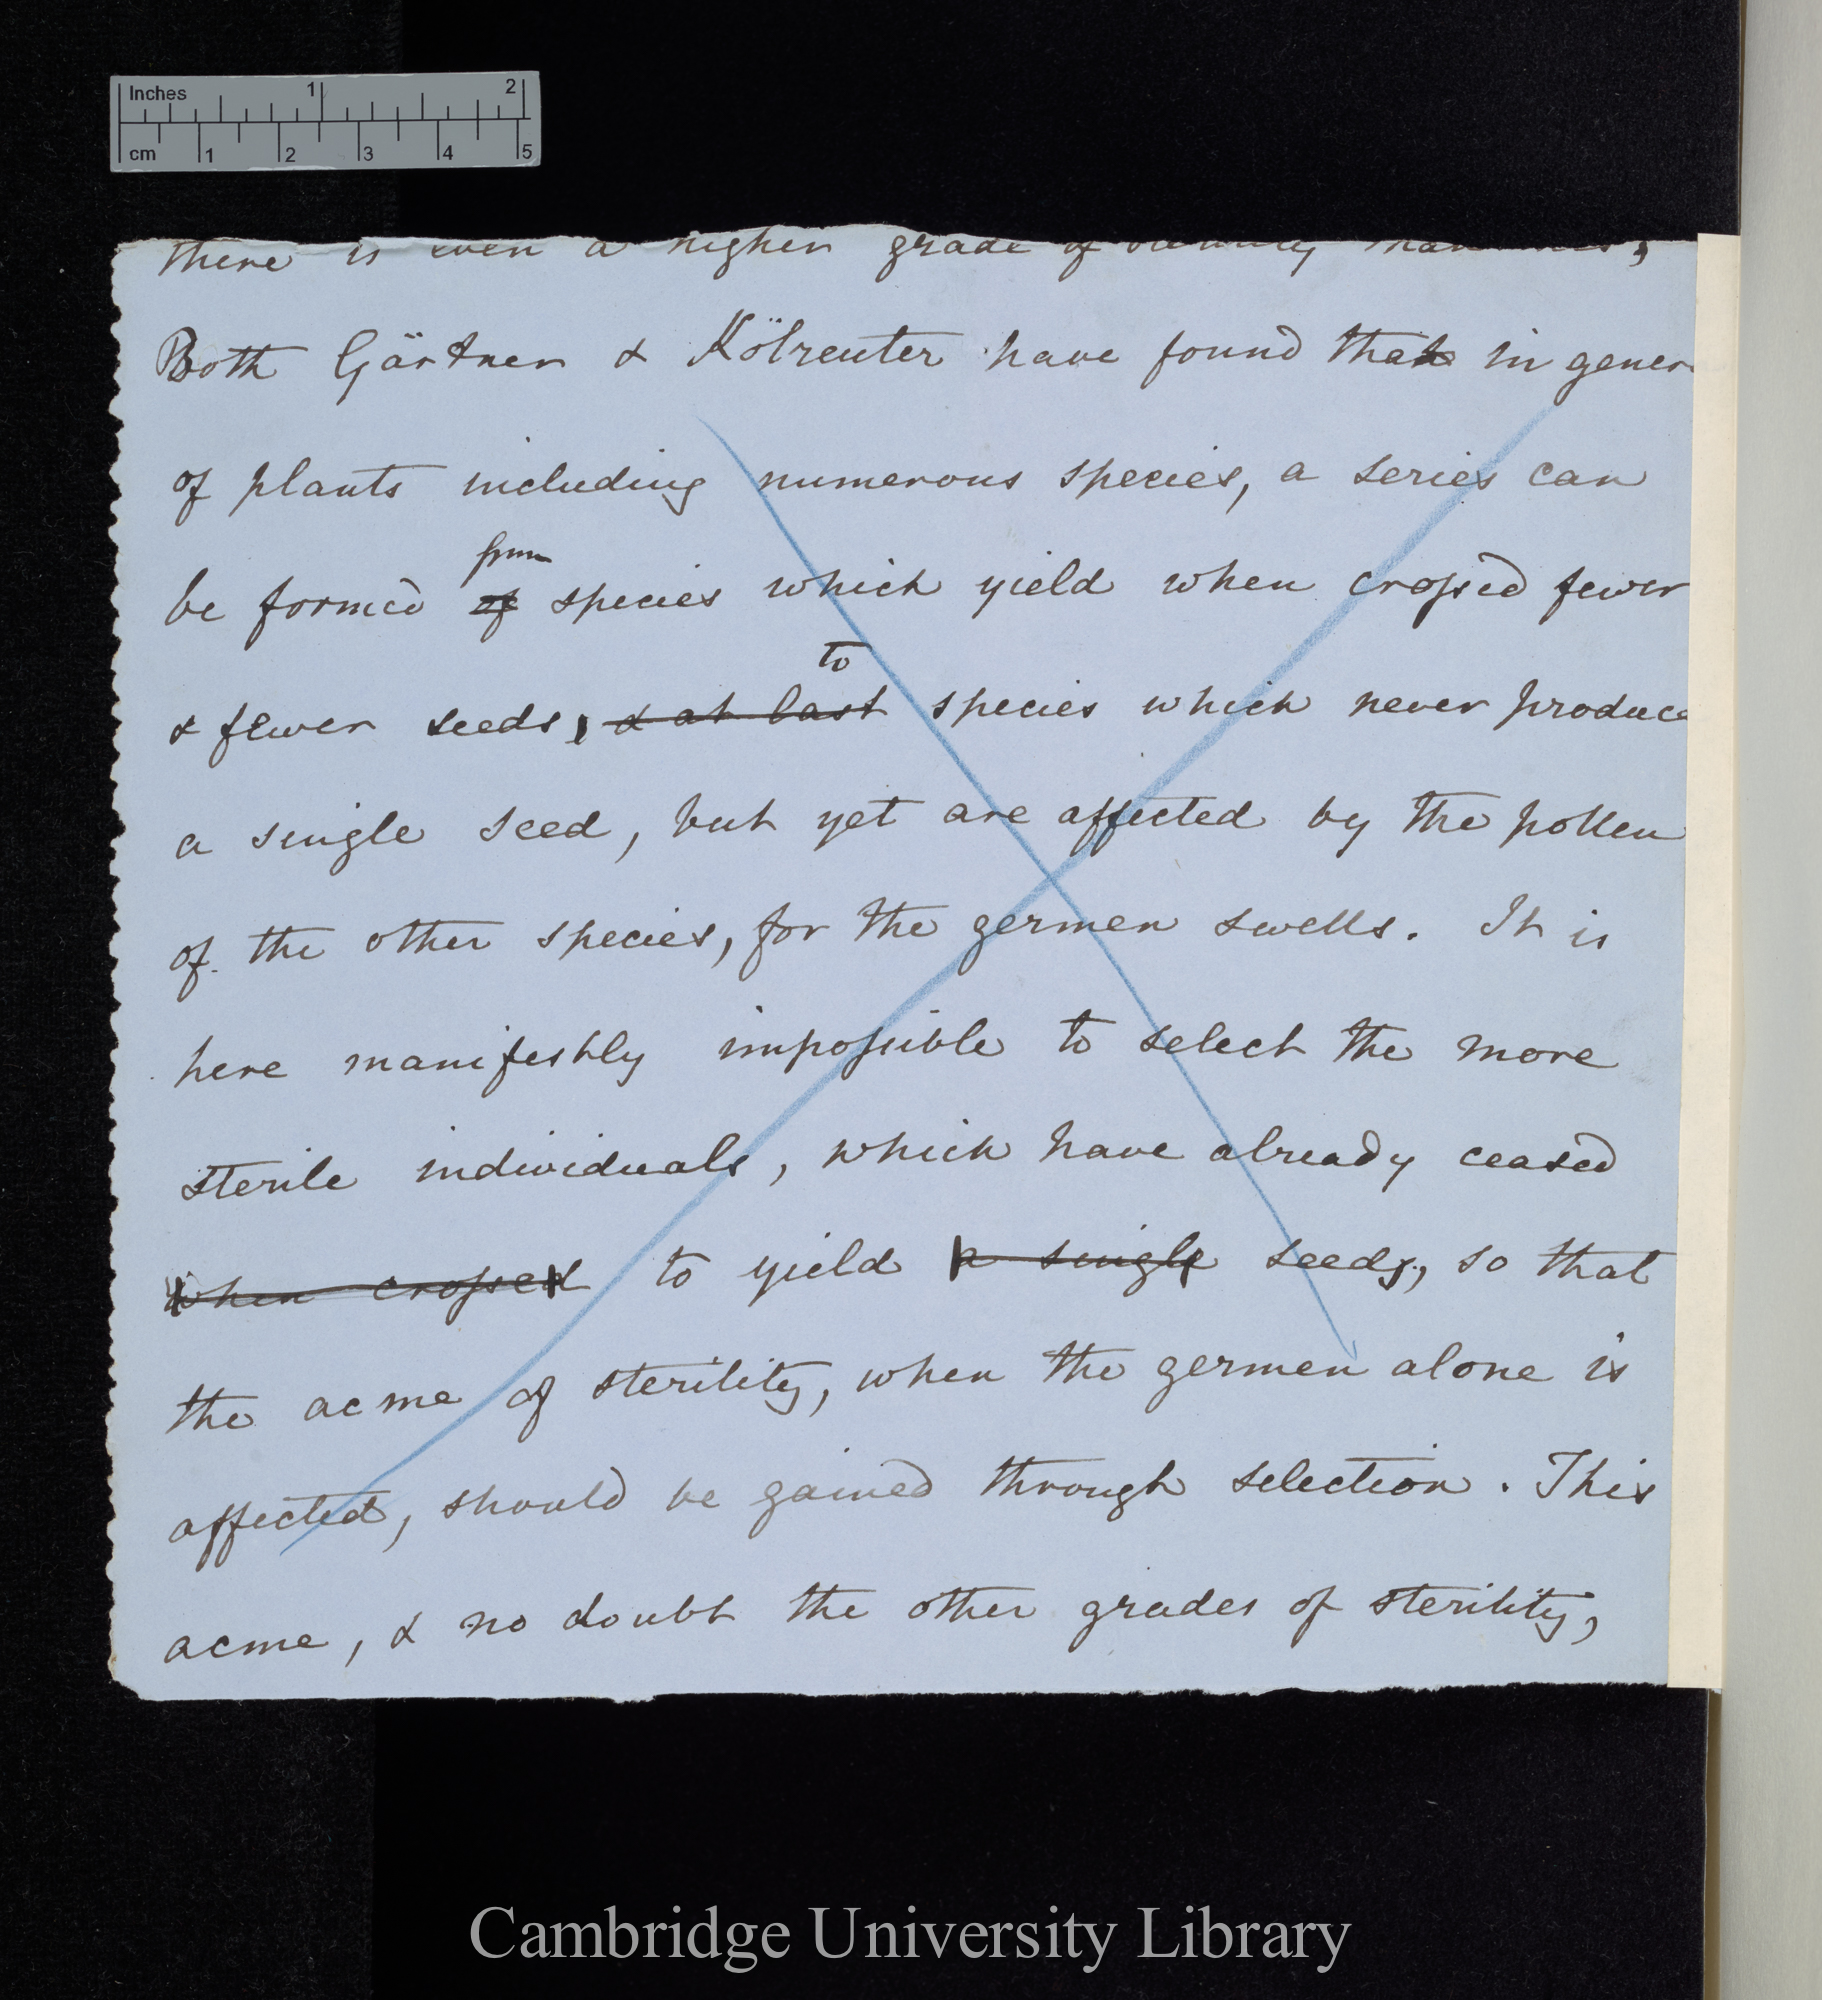 Inches 1 2
cm 1 2 3 4 5
there is even a higher grade of sterility than this;
Both Gärtner & Kölreuter have found that in gener
of plants including numerous species, a series can
from
be formed of species which yield when crossed fewer
to
& fewer seeds, & at last species which never produce
a single seed, but yet are affected by the pollen
of the other species, for the germen swells. It is
here manifestly impossible to select the more
sterile individuals, which have already ceased
when crossed to yield a single seeds, so that
the acme of sterility, when the germen alone is
affected, should be gained through selection. This
acme, & no doubt the other grades of sterility,
Cambridge University Library